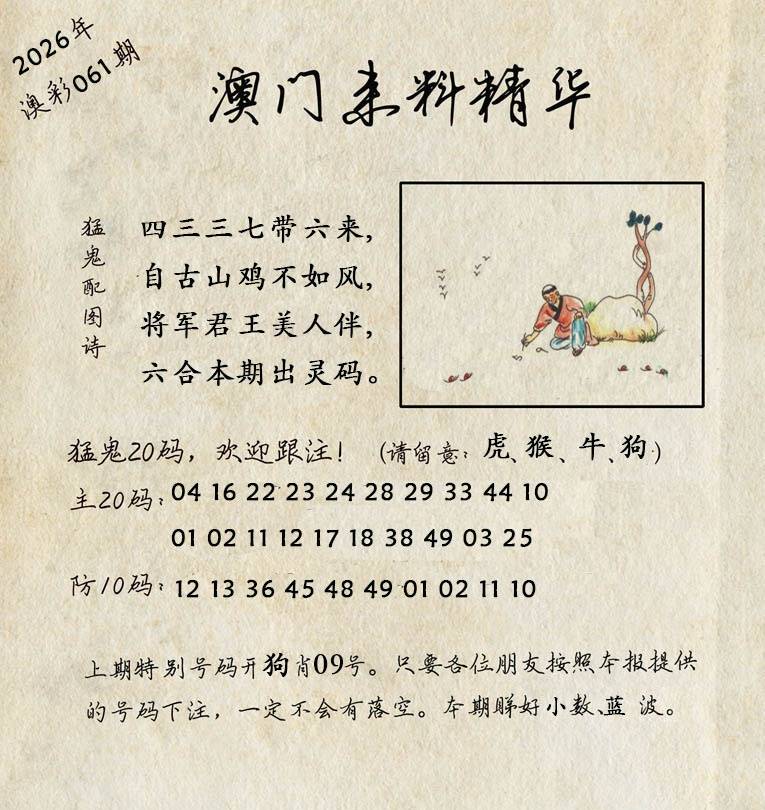 2026年
澳彩061期
澳门来料精华
猛鬼配图诗
四三三七带六来，
自古山鸡不如风，
将军君王美人伴，
六合本期出灵码。
猛鬼20码，欢迎跟注！（请留意：虎、猴、牛、狗）
主20码：04 16 22 23 24 28 29 33 44 10
01 02 11 12 17 18 38 49 03 25
防10码：12 13 36 45 48 49 01 02 11 10
上期特别号码开狗肖09号。只要各位朋友按照本报提供
的号码下注，一定不会有落空。本期睇好小数、蓝 波。